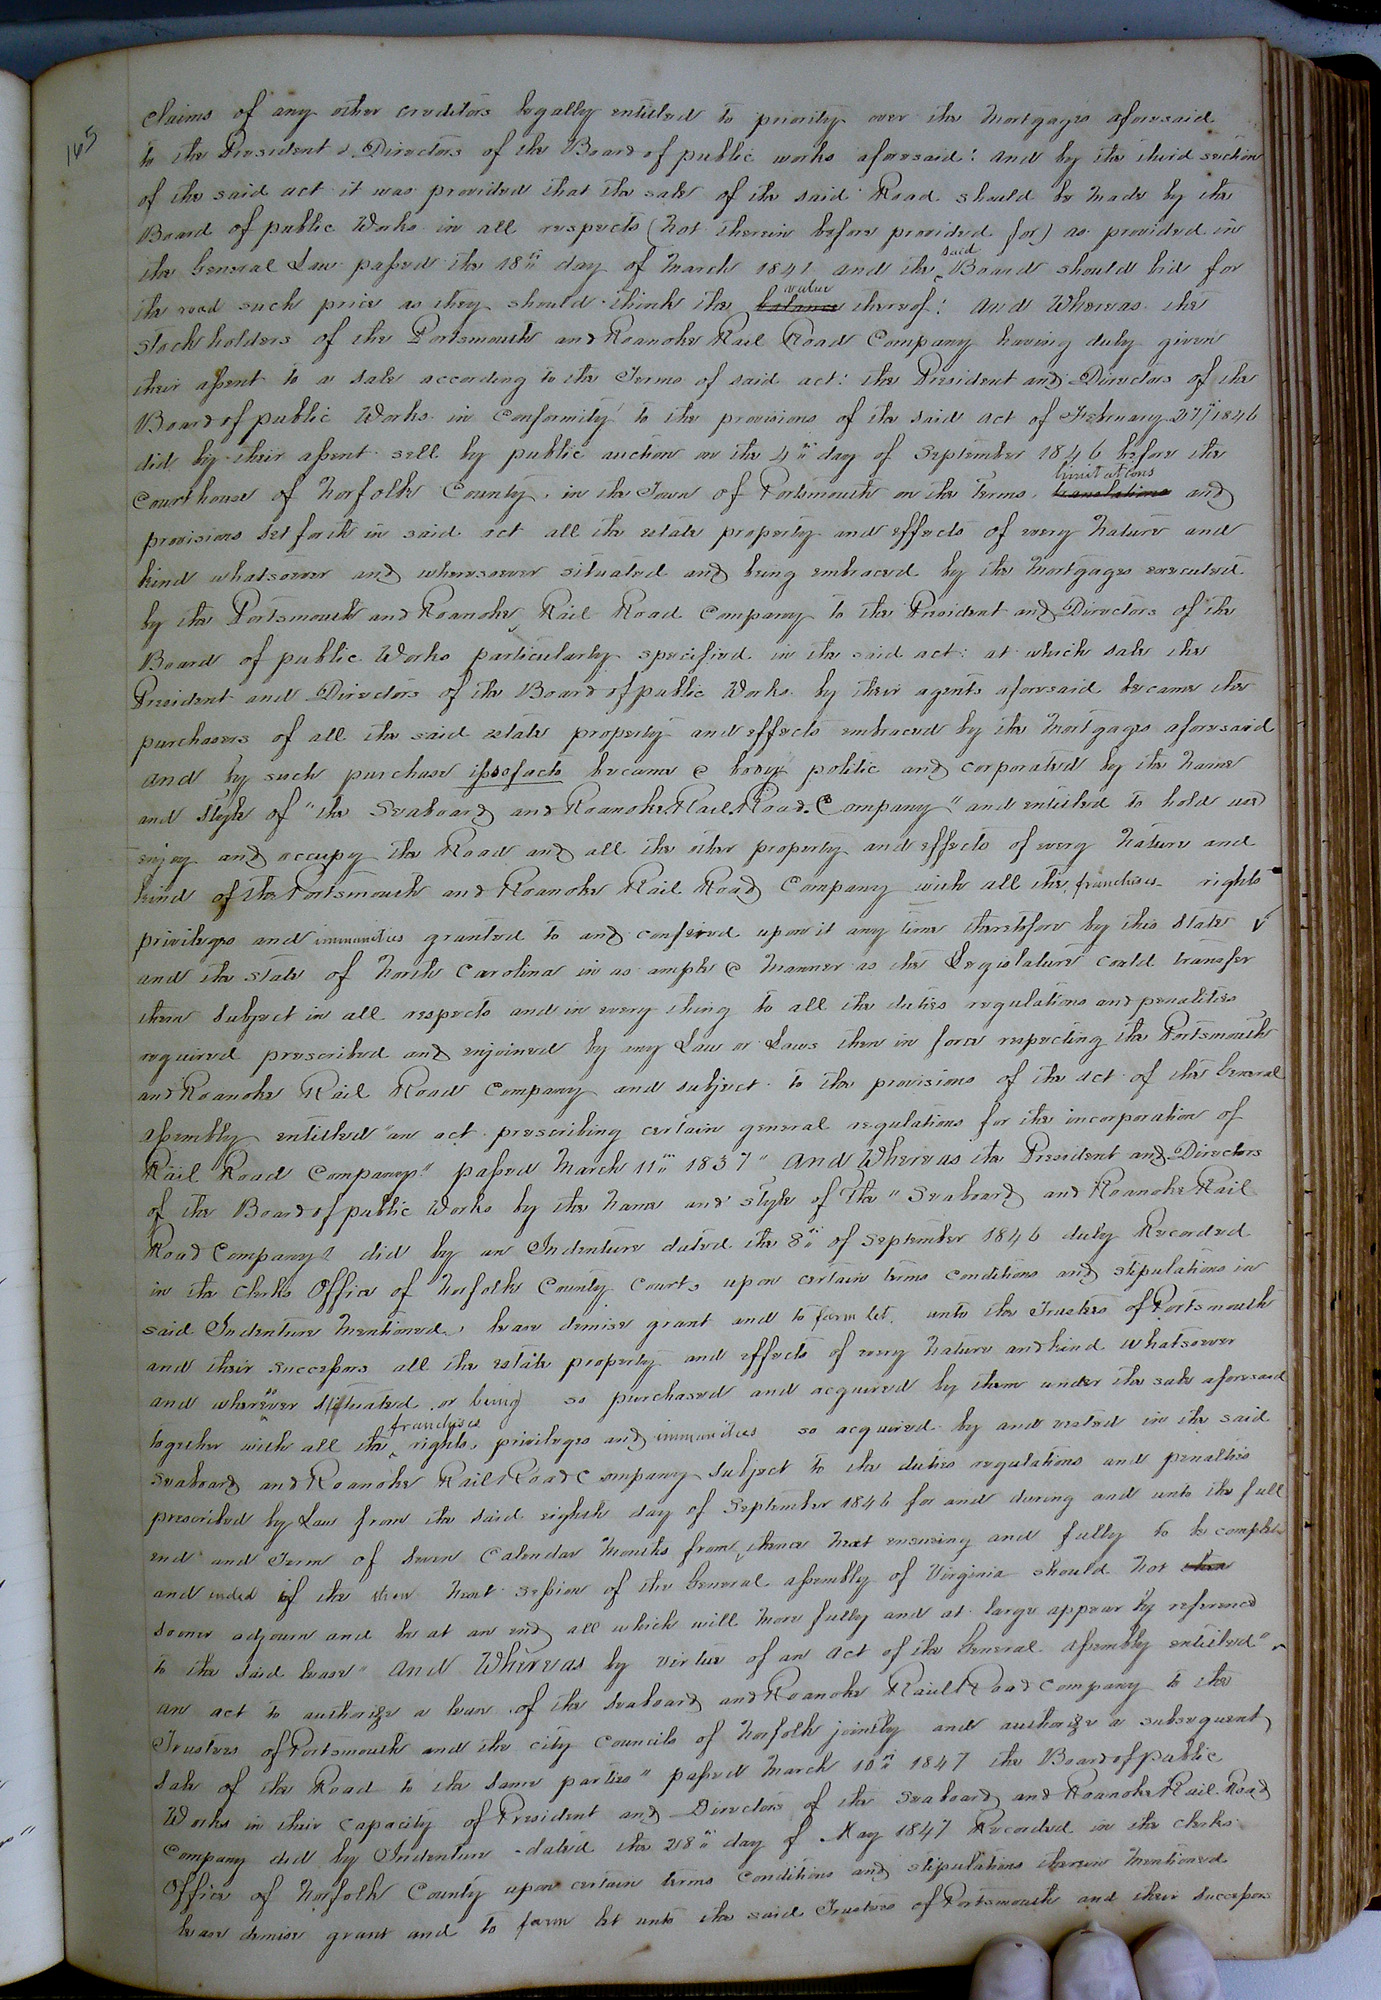 165
claims of any other creditors legally entitled to priority over the Mortgages aforesaid
to the President & Directors of the Board of public works aforesaid: and by the third section
of the said act it was provided that the sale of the said Road should be made by the
Board of public Works in all respects (not therein before provided for) as provided in
the General Law passed the 18th day of March 1841 and the said Board should bid for
the road such price as they should think the balance value thereof: And Whereas the
stockholders of the Portsmouth and Roanoke Rail Road Company having duly given
their assent to a sale according to the Terms of said act: the President and Directors of the
Board of public Works in conformity to the provisions of the said act of February 27th 1846
did by their assent sell by public auction on the 4th day of September 1846 before the
Courthouse of Norfolk County in the Town of Portsmouth on the terms translations limitations and
provisions set forth in said act all the estate property and effects of every nature and
kind whatsoever and wheresoever situated and being embraced by the Mortgages executed
by the Portsmouth and Roanoke Rail Road Company to the President and Directors of the
Board of public Works particularly specified in the said act: at which sale the
President and Directors of the Board of public Works by their agents aforesaid became the
purchasers of all the said estate property and effects embraced by the Mortgages aforesaid
and by such purchase ipsofacto became a body politic and corporated by the name
and style of "the Seaboard and Roanoke Rail Road Company" and entitled to hold use
enjoy and occupy the Road and all the other property and effects of every nature and
kind of the Portsmouth and Roanoke Rail Road Company with all the franchises rights
privileges and immunities granted to and confered upon it any time theretofore by this State
and the State of North Carolina in as ample a manner as the Legislature could transfer
them subject in all respects and in every thing to all the duties regulations and penalities
required prescribed and enjoined by any Law or Laws then in force respecting the Portsmouth
and Roanoke Rail Road Company and subject to the provisions of the act of the General
assembly entitled "an act prescribing certain general regulations for the incorporation of
Rail Road Companys" passed March 11th 1837" And Whereas the President and Directors
of the Board of public Works by the name and style of The "Seaboard and Roanoke Rail
Road Company" did by an Indenture dated the 8th of September 1846 duly Recorded
in the Clerks Office of Norfolk County Court, upon certain terms conditions and stipulations in
said Indenture mentioned, lease demise grant and to farm let unto the Trustees of Portsmouth
and their successors all the estate property and effects of every nature and kind whatsoever
and wherever situated or being so purchased and acquired by them under the sale aforesaid
together with all the franchises rights, privileges and immunities so acquired by and vested in the said
Seaboard and Roanoke Rail Road Company subject to the duties regulations and penalties
prescribed by Law from the said eighth day of September 1846 for and during and unto the full
end and Term of seven Calendar months from thence next ensuing and fully to be complete
and ended if the then next session of the General assembly of Virginia should not then
sooner adjourn and be at an end all which will more fully and at large appear by reference
to the said lease" And Whereas by virtue of an act of the General Assembly entitled"
an act to authorize a lease of the Seaboard and Roanoke Rail Road Company to the
Trustees of Portsmouth and the city Councils of Norfolk jointly and authorize a subsequent
sale of the Road to the same parties" passed March 10th 1847 the Board of public
Works in their capacity of President and Directors of the Seaboard and Roanoke Rail Road
Company did by Indenture dated the 28th day of May 1847 Recorded in the clerks
Office of Norfolk County upon certain terms conditions and stipulations therein mentioned
lease demise grant and to farm let unto the said Trustees of Portsmouth and their successors